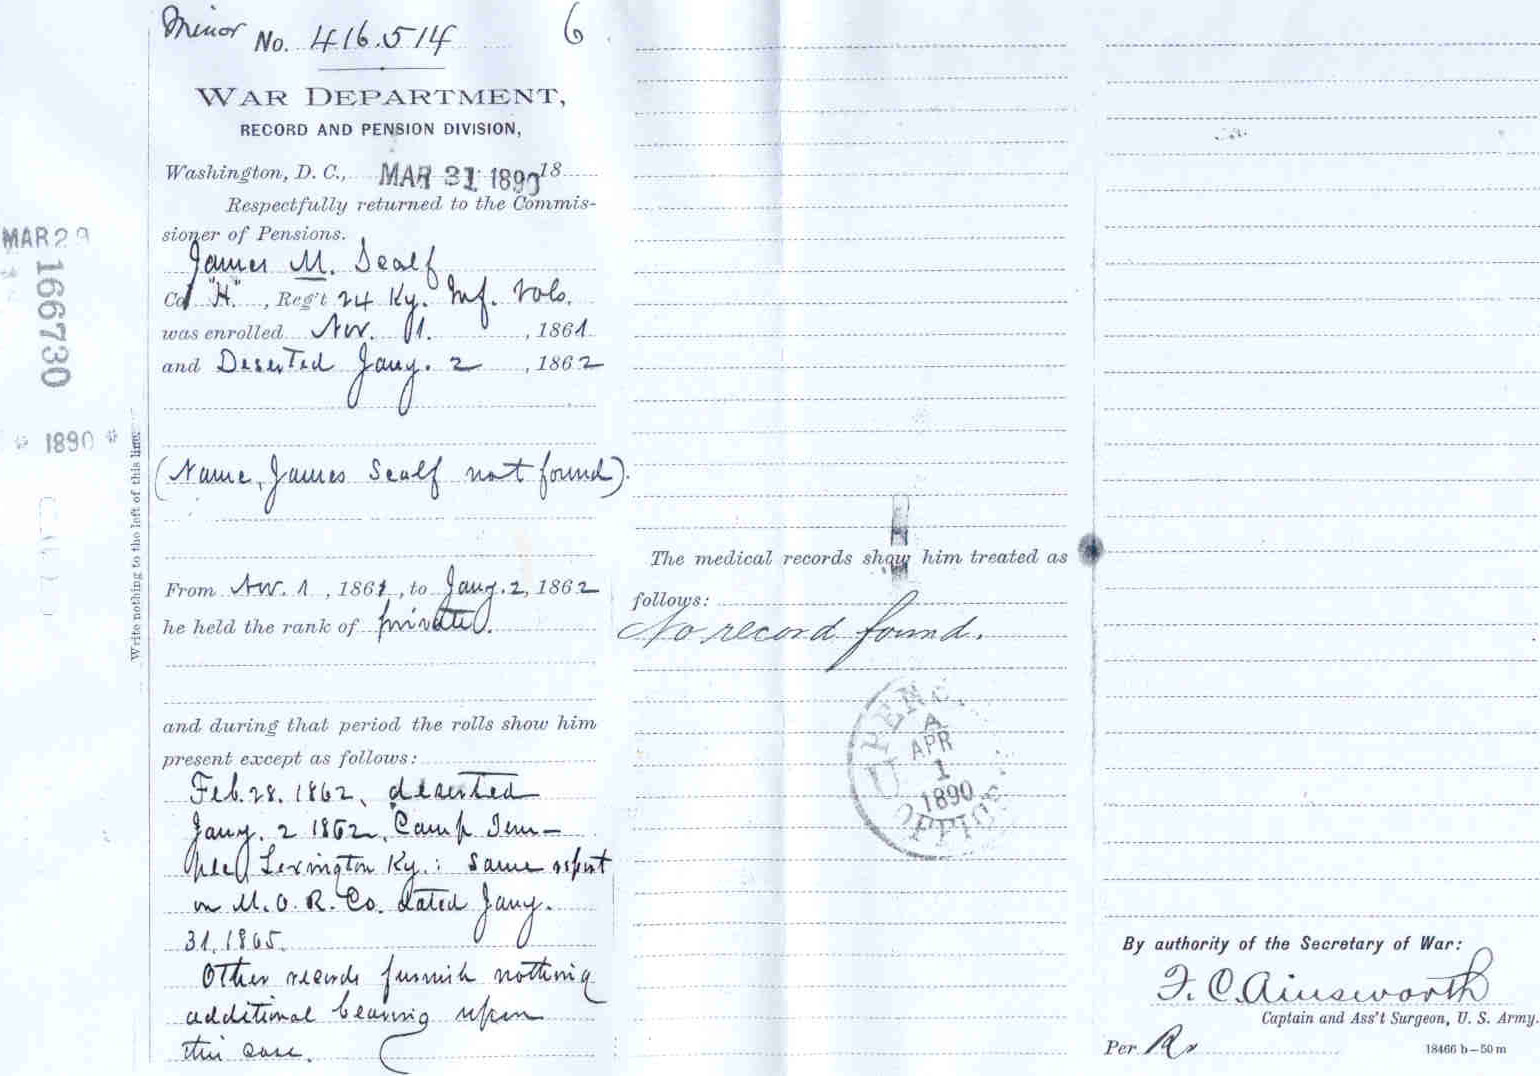 Minor No. 416.514
6
WAR DEPARTMENT,
RECORD AND PENSION DIVISION,
Washington, D. C., MAR 31 1890 18
Respectfully returned to the Commis-
sioner of Pensions.
James M. Scalf
Co "H", Reg't 24 Ky. Inf. Vols.
was enrolled Nov. 1. , 1861
and Deserted Jany. 2 , 1862
(Name, James Scalf not found).
From Nov. 1 , 1861, to Jany. 2, 1862
he held the rank of private.
and during that period the rolls show him
present except as follows:
Feb. 28. 1862, deserted
Jany. 2 1862, Camp Tem-
ple Lexington Ky.: Same report
on M. O. R. Co. dated Jany.
31, 1865.
Other records furnish nothing
additional bearing upon
this case.
MAR 29
166730
1890
Write nothing to the left of this line.
The medical records show him treated as
follows:
No record found.
U PEN
A
APR
1
1890
OFFICE
By authority of the Secretary of War:
F. C. Ainsworth
Captain and Ass't Surgeon, U. S. Army.
Per
18466 b—50 m